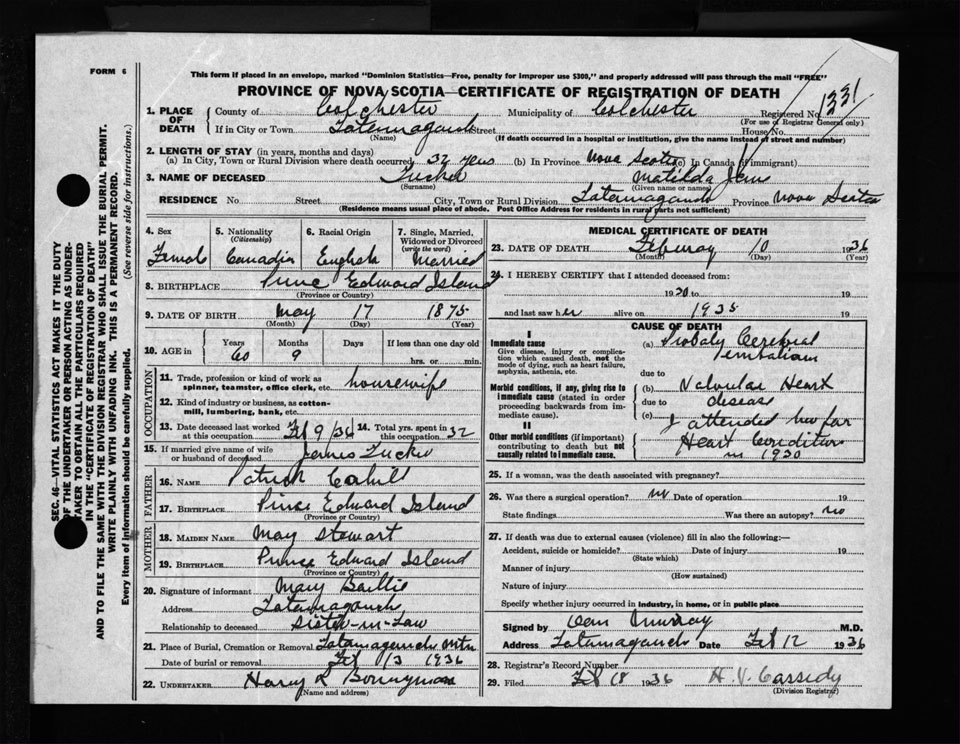 FORM 6
This form if placed in an envelope, marked "Dominion Statistics—Free, penalty for improper use $300," and properly addressed will pass through the mail "FREE"
PROVINCE OF NOVA SCOTIA—CERTIFICATE OF REGISTRATION OF DEATH
1. PLACE OF DEATH County of Colchester Municipality of Colchester Registered No. 1331
(For use of Registrar General only)
If in City or Town Tatamagouch Street House No.
(Name) (If death occurred in a hospital or institution, give the name instead of street and number)
2. LENGTH OF STAY (in years, months and days)
(a) In City, Town or Rural Division where death occurred 32 years (b) In Province Nova Scotia (c) In Canada (if immigrant)
3. NAME OF DECEASED Tucker Matilda Jane
(Surname) (Given name or names)
RESIDENCE No. Street City, Town or Rural Division Tatamagouch Province Nova Scotia
(Residence means usual place of abode. Post Office Address for residents in rural parts not sufficient)
4. Sex 5. Nationality (Citizenship) 6. Racial Origin 7. Single, Married, Widowed or Divorced (write the word)
Female Canadian English Married
8. BIRTHPLACE Prince Edward Island
(Province or Country)
9. DATE OF BIRTH May 17 1875
(Month) (Day) (Year)
10. AGE in Years Months Days If less than one day old
60 9 hrs. or min.
OCCUPATION
11. Trade, profession or kind of work as spinner, teamster, office clerk, etc. housewife
12. Kind of industry or business, as cotton-mill, lumbering, bank, etc.
13. Date deceased last worked at this occupation Feb 9/36 14. Total yrs. spent in this occupation 32
15. If married give name of wife or husband of deceased James Tucker
FATHER
16. Name Patrick Cahill
17. Birthplace Prince Edward Island
(Province or Country)
MOTHER
18. Maiden Name May Stewart
19. Birthplace Prince Edward Island
(Province or Country)
20. Signature of informant Mary Baillie
Address Tatamagouch
Relationship to deceased Sister-in-Law
21. Place of Burial, Cremation or Removal Tatamagouch Mtn
Date of burial or removal Feb 13 1936
22. Undertaker Harry R Bonnyman
(Name and address)
MEDICAL CERTIFICATE OF DEATH
23. DATE OF DEATH Feberay 10 1936
(Month) (Day) (Year)
24. I HEREBY CERTIFY that I attended deceased from:
1930 to 19
and last saw her alive on 1935 19
CAUSE OF DEATH
I
Immediate cause
Give disease, injury or complication which caused death, not the mode of dying, such as heart failure, asphyxia, asthenia, etc.
(a) Probaly Cerebral
due to
Morbid conditions, if any, giving rise to immediate cause (stated in order proceeding backwards from immediate cause).
(b) Valvular Heart
due to disease
(c) I attended her for
II
Other morbid conditions (if important) contributing to death but not causally related to immediate cause.
Heart Condition
in 1930
25. If a woman, was the death associated with pregnancy?
26. Was there a surgical operation? no Date of operation 19
State findings Was there an autopsy? no
27. If death was due to external causes (violence) fill in also the following:—
Accident, suicide or homicide? Date of injury 19
(State which)
Manner of injury
(How sustained)
Nature of injury
Specify whether injury occurred in industry, in home, or in public place
Signed by Dan Murray M.D.
Address Tatamagouch Date Feb 12 1936
28. Registrar's Record Number
29. Filed Feb 18 1936 H. V. Cassidy
(Division Registrar)
SEC. 46—VITAL STATISTICS ACT MAKES IT THE DUTY
OF THE UNDERTAKER OR PERSON ACTING AS UNDER-
TAKER TO OBTAIN ALL THE PARTICULARS REQUIRED
IN THE "CERTIFICATE OF REGISTRATION OF DEATH"
AND TO FILE THE SAME WITH THE DIVISION REGISTRAR WHO SHALL ISSUE THE BURIAL PERMIT.
WRITE PLAINLY WITH UNFADING INK. THIS IS A PERMANENT RECORD.
Every item of information should be carefully supplied. (See reverse side for instructions.)